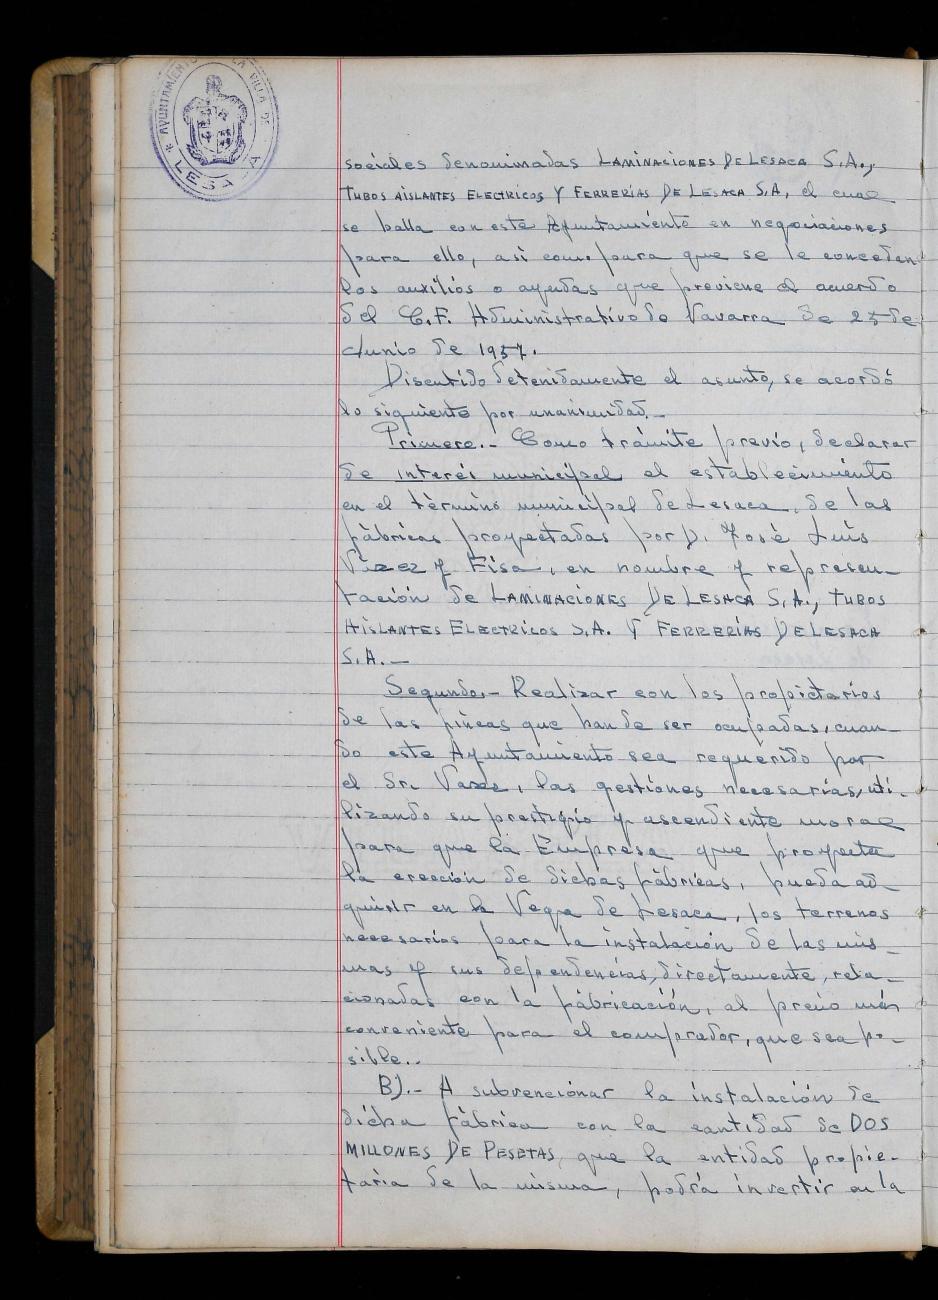 AYUNTAMIENTO LA VILLA DE LESACA
sociales denominadas LAMINACIONES DE LESACA S.A.,
TUBOS AISLANTES ELECTRICOS Y FERRERÍAS DE LESACA S.A, el cual
se halla con este Ayuntamiento en negociaciones
para ello, asi como para que se le concedan
los auxilios o ayudas que previene el acuerdo
del C.F. Administrativo de Navarra de 25 de
Junio de 1957.
Discutido detenidamente el asunto, se acordó
lo siguiente por unanimidad.-
Primero.- Como trámite previo, declarar
de interés municipal el establecimiento
en el término municipal de Lesaca, de las
fábricas proyectadas por D. José Luis
Vázez y Fisa, en nombre y represen-
tación de LAMINACIONES DE LESACA S.A., TUBOS
AISLANTES ELECTRICOS S.A. Y FERRERÍAS DE LESACA
S.A.-
Segundo.- Realizar con los propietarios
de las fincas que han de ser ocupadas, cuan-
do este Ayuntamiento sea requerido por
el Sr. Vazez, las gestiones necesarias, uti-
lizando su prestigio y ascendiente moral
para que la Empresa que proyecta
la creación de dichas fábricas, pueda ad-
quirir en la Vega de Lesaca, los terrenos
necesarios para la instalación de las mis-
mas y sus dependencias, directamente, rela-
cionadas con la fábricación, al precio más
conveniente para el comprador, que sea po-
sible..
B).- A subvencionar la instalación de
dicha fábrica con la cantidad de DOS
MILLONES DE PESETAS, que la entidad propie-
taria de la misma, podría invertir en la